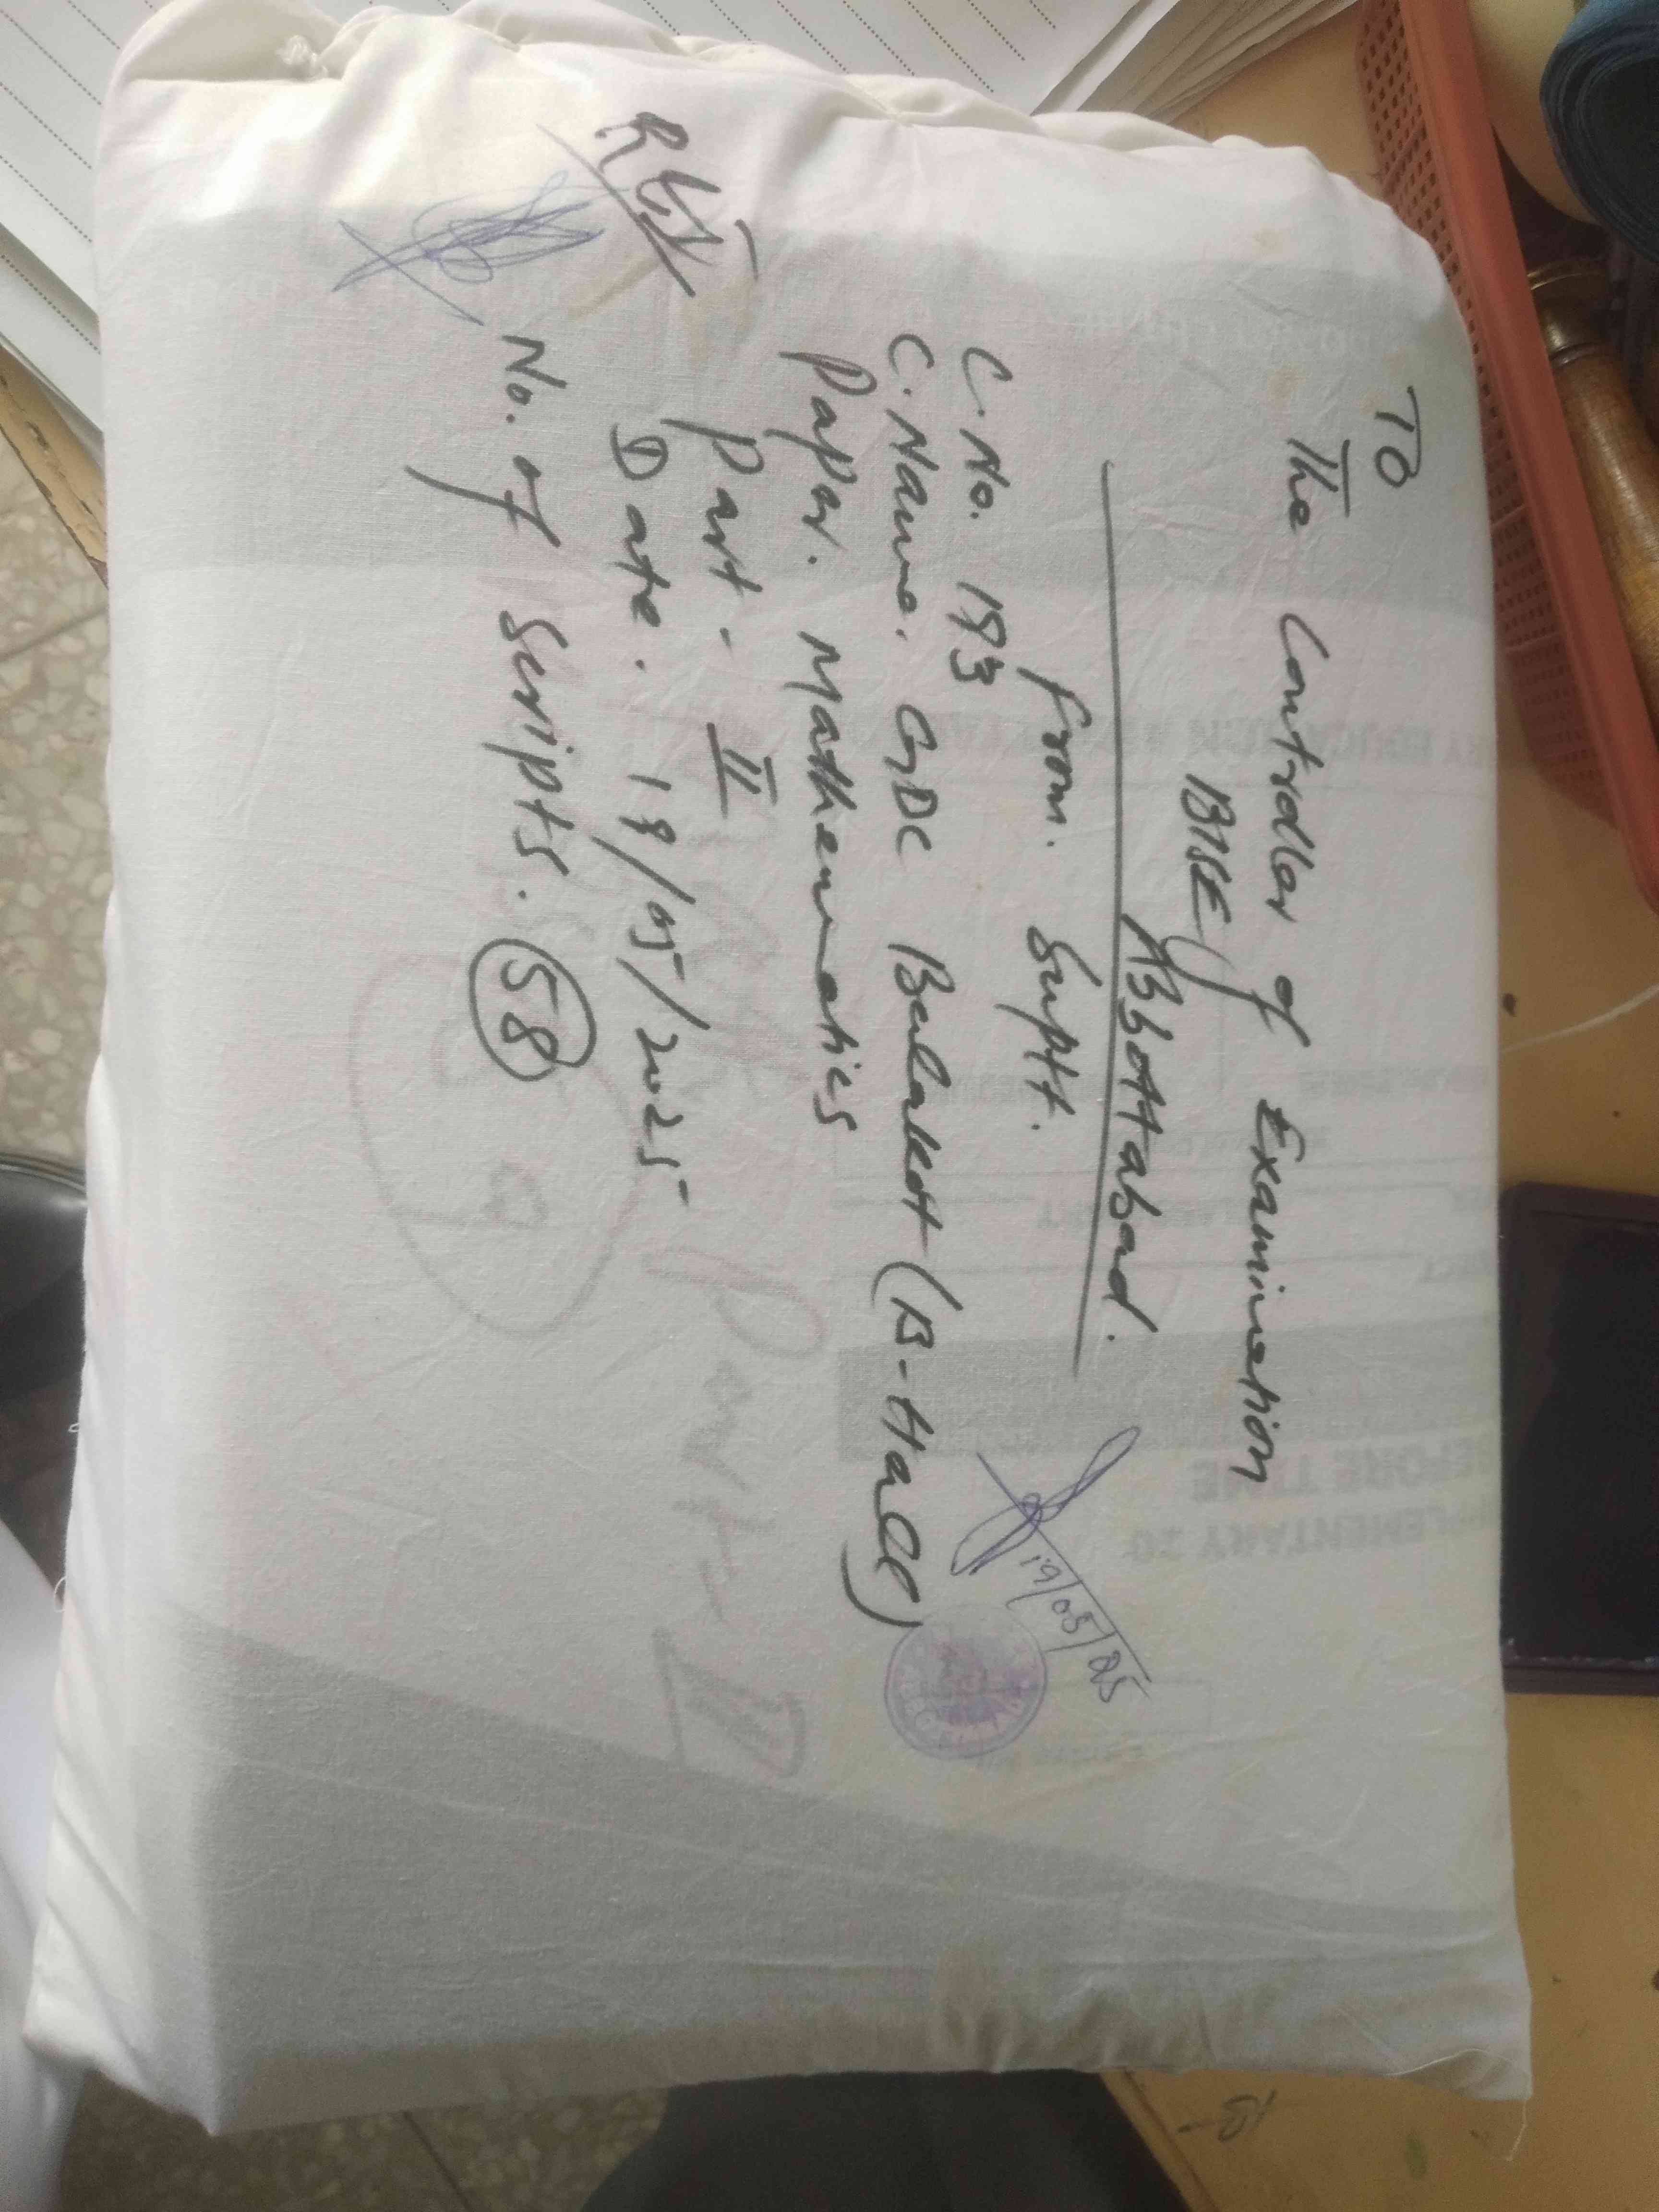 To
The Controller of Examination
BISE
Abbottabad.
From. Suptt.
C. No. 193
C. Name. GDC Balakot (B-Hall)
Paper. Mathematics
Part - II
Date. 19/05/2025
No. of Scripts. 58
19/05/25
Part-II
BEFORE TIME